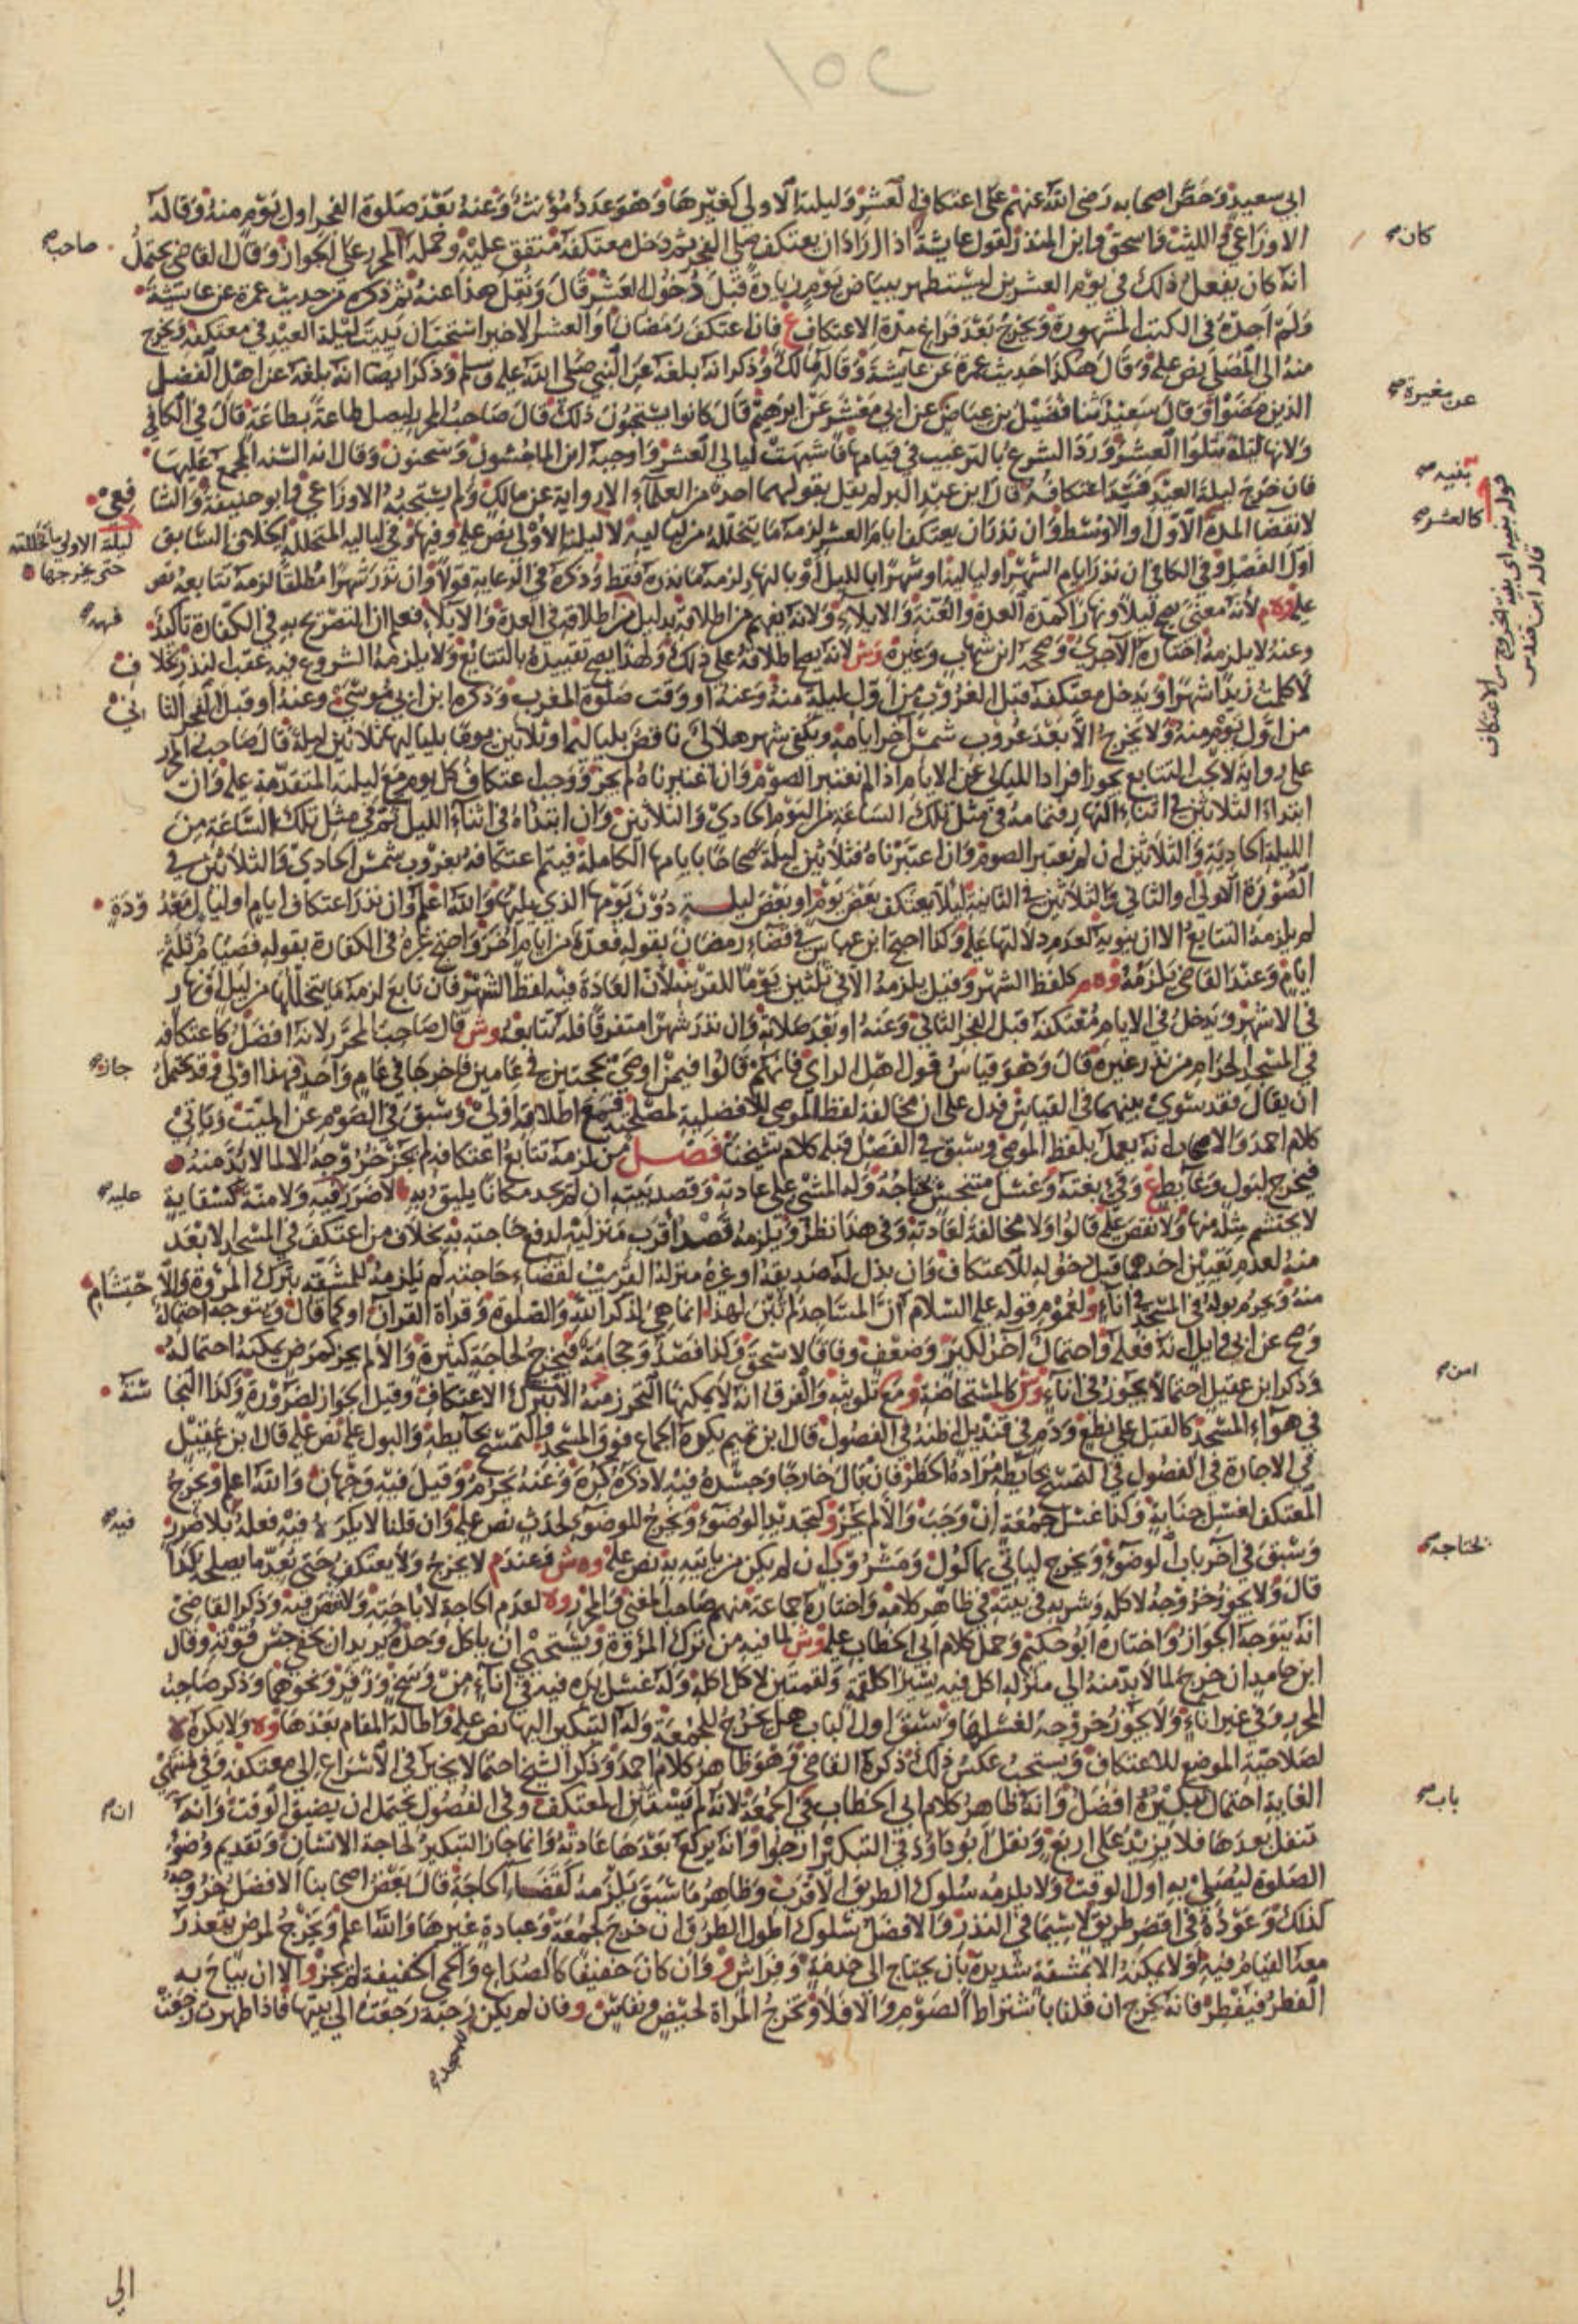 ١٥٢
ابي سعيد وحض اصحابه رضي الله عنهم على اعتكاف العشر وليلته الاولى كغيرها وهو عدد مؤنث وعنه بعد صلوة الفجر اول يوم منه وقاله
الاوزاعي والليث واسحق وابن المنذر لقول عايشة اذا اراد ان يعتكف صلى الفجر ثم دخل معتكفه متفق عليه وحمله المحرر على الجواز وقال القاضي يحتمل
انه كان يفعل ذلك في يوم العشرين ليستظهر ببياض يوم زيادة قبل دخول العشر قال ونقل هذا عنه ثم ذكره من حديث عمرة عن عايشة
ولم اجده في الكتب المشهورة ويخرج بعد فراغ مدة الاعتكاف ع فان اعتكف رمضان او العشر الاخير استحب ان يبيت ليلة العيد في معتكفه ويخرج
منه الى المصلى نص عليه وقال هكذا حديث عمرة عن عايشة وقاله مالك وذكر انه بلغه عن النبي صلى الله عليه وسلم وذكر ايضا انه بلغه عن اهل الفضل
الذين مضوا وقال سعيد ثنا فضيل بن عياض عن ابي معشر عن ابرهيم قال كانوا يستحبون ذلك قال صاحب المحرر ليصل طاعة بطاعة قال في الكافي
ولانها ليلة تتلوا العشر ورد الشرع بالترغيب في قيامها فاشبهت ليالي العشر واوجبه ابن الماجشون وسحنون وقال انه السنه المجمع عليها
فان خرج ليلة العيد فسد اعتكافه قال ابن عبد البر لم يقل بقولهما احد من العلماء الا رواية عن مالك ولم يستحبه الاوزاعي وابو حنيفة والشافعي
لانقضا المدة الاول والاوسط وان نذر ان يعتكف ايام العشر لزمه ما يتخلله من لياليه لا ليلته الاولى نص عليه وفيها وفي لياليه المتخللة الخلاف السابق
اول الفصل وفي الكافي ان نذر ايام الشهر او لياليه او شهرا بالليل او بالنهار لزمه ما نذره فقط وذكره في الرعاية قولا وان نذر شهرا مطلقا لزمه تتابعه نص
عليه وهم لانه معنى يصح ليلا ونهارا كمدة العدة والعنة والايلاء ولانه يفهم من اطلاقه بدليل من اطلاقه في العدة والايلاء فعلم ان التصريح به في الكفارة تاكيد
وعنه لا يلزمه اختاره الآجري وصححه ابن شهاب وغيره وش لانه يصح اطلاقه على ذلك ولهذا يصح تقييده بالتتابع ولا يلزمه الشروع فيه عقب النذر بخلاف
لا كلمت زيدا شهرا ويدخل معتكفه قبل الغروب من اول ليلة منه وعنه او وقت صلوة المغرب وذكره ابن ابي موسى وعنه او قبل الفجر الثاني
من اول يوم منه ولا يخرج الا بعد غروب شمس آخر ايامه ويكفي شهر هلالي ناقص بلياليه او ثلاثين يوما بلياليها ثلاثين ليلة قال صاحب المحرر
على رواية لا يجب التتابع يجوز افراد الليالي عن الايام اذا لم نعتبر الصوم وان اعتبرناه لم يجز ووجب اعتكاف كل يوم مع ليلته المتقدمة عليه وان
ابتداء الثلاثين في اثناء النهار فتمامه في مثل تلك الساعة من اليوم الحادي والثلاثين وان ابتداه في اثناء الليل تم في مثل تلك الساعة من
الليلة الحادية والثلاثين ان لم نعتبر الصوم وان اعتبرناه فثلاثين ليلة صحاحا بايامها الكاملة فيتم اعتكافه بغروب شمس الحادي والثلاثين في
الصورة الاولى او الثاني والثلاثين في الثانية ليلا يعتكف بعض يوم او بعض ليلة دون يومها الذي يليها والله اعلم وان نذر اعتكاف ايام او ليال معدودة
لم يلزمه التتابع الا ان ينويه لعدم دلالتها عليه وكذا احتج ابن عباس في قضاء رمضان بقوله فعدة من ايام اخر واحتج غيره في الكفارة بقوله فصيام ثلثة
ايام وعند القاضي يلزمه وهم كلفظ الشهر وقيل يلزمه الا في ثلثين يوما للقرينة لان العادة فيه لفظ الشهر فان تابع لزمه ما يتخللها من ليل او نهار
في الاشهر ويدخل في الايام معتكفه قبل الفجر الثاني وعنه او بعد صلاته وان نذر شهرا متفرقا فله تتابعه وش قال صاحب المحرر لانه افضل كاعتكافه
في المسجد الحرام من نذر غيره قال وهو قياس قول اهل الراي فانهم قالوا فيمن اوصى بحجتين في عامين فاخرجا في عام واحد فهذا اولى وقد يحتمل
ان يقال فقد سوى بينهما في القياس فدل على ان مخالفة لفظ الموصي للافضلية لمصلحته فمع اطلاقه اولى وسبق في الصوم عن الميت وياتي
كلام احمد والاصحاب انه يعمل بلفظ الموصي وسبق في الفصل قبله كلام شيخنا فصل من لزمه تتابع اعتكافه لم يجز خروجه الا لما لا بد منه
فيخرج لبول وغايط ع وقيء بغته وغسل متنجس يحتاجه وله المشي على عادته وقصد بيته ان لم يجد مكانا يليق به لا ضرر فيه ولا منة كسقاية
لا يحتشم مثله منها ولا نقص عليه قالوا ولا مخالفة لعادته وفي هذا نظر ويلزمه قصد اقرب منزليه لدفع حاجته به بخلاف من اعتكف في المسجد الابعد
منه لعدم تعيين احدهما قبل دخوله للاعتكاف وان بذل له صديقه او غيره منزله القريب لقضاء حاجته لم يلزمه للمشقة بترك المروة والاحتشام
منه ويحرم بوله في المسجد في اناء ولعموم قوله عليه السلام ان المساجد لم تبن لهذا انما هي لذكر الله والصلوة وقراة القرآن او كما قال ويتوجه احتمال
وصح عن ابي وايل انه فعله واحتمال آخر لكبر وضعف وفاقا لاسحق وكذا فصد وحجامة فيخرج لحاجة كثيرة والا لم يجز كمرض يمكنه احتماله
وذكر ابن عقيل احتمالا يجوز في اناء وش كالمستحاضة ومع تلويثه والفرق انه لا يمكنها التحرز منه الا بترك الاعتكاف وقيل الجواز لضرورة وكذا النجاسة
في هواء المسجد كالقتل على نطع ودم في قنديل اظنه في الفصول قال ابن تميم يكره الجماع فوق المسجد والتمسح بحايطه والبول عليه نص عليه قال ابن عقيل
في الاجارة في الفصول في التمسح بحايطه مراده الحظر فان بال خارجا وجسده فيه لا ذكره كره وعنه يحرم وقيل فيه وجهان والله اعلم ويخرج
المعتكف لغسل جنابة وكذا غسل جمعة ان وجب والا لم يجز كتجديد الوضوء ويخرج للوضوء لحدث نص عليه وان قلنا لا يكره فيه فعله بلا ضرر
وسبق في آخر باب الوضوء ويخرج لياتي بماكول ومشروب ان لم يكن من ياتيه به نص عليه وهش فعندم لا يخرج ولا يعتكف حتى يعد ما يصلحه كذا
قال ولا يجوز خروجه لاكله وشربه في بيته في ظاهر كلامه واختاره جماعة منهم صاحب المغني والمحرر وه لعدم الحاجة لاباحته ولا نقص فيه وذكر القاضي
انه يتوجه الجواز واختاره ابو حكيم وحمل كلام ابي الخطاب عليه وش لما فيه من ترك المروة ويستحيي ان ياكل وحده ويريد ان يخفي جنس قوته وقال
ابن حامد ان خرج لما لا بد منه الى منزله اكل فيه يسيرا كلقمة ولقمتين لا كل اكله وله غسل يده فيه في اناء من وسخ وزفر ونحوهما وذكر صاحب
المحرر وفي غير اناء ولا يجوز خروجه لغسلها وسبق اول الباب هل يخرج للجمعة وله التبكير اليها نص عليه واطالة المقام بعدها وه ولا يكره لا
لصلاحية الموضع للاعتكاف ويستحب عكس ذلك ذكره القاضي وهو ظاهر كلام احمد وذكر الشيخ احتمالا يخير في الاسراع الى معتكفه وفي منتهى
الغاية احتمال تبكيره افضل وانه ظاهر كلام ابي الخطاب في الجمعة لانه لم يستثن المعتكف وفي الفصول يحتمل ان يضيق الوقت وانه
تنفل بعدها فلا يزيد على اربع ونقل ابو داود في التبكير ارجوا وانه يركع بعدها عادته وانما جاز التبكير لحاجة الانسان وتقديم وضوء
الصلوة ليصلي به اول الوقت ولا يلزمه سلوك الطريق الاقرب وظاهر ما سبق يلزمه كقضاء الحاجة قال بعض اصحابنا الافضل خروجه
كذلك وعوده في اقصر طريق لا سيما في النذر والافضل سلوك اطول الطرق ان خرج لجمعة وعبادة غيرها والله اعلم ويخرج لمرض يتعذر
معه القيام فيه او لا يمكنه الا بمشقة شديدة بان يحتاج الى خدمة وفراش وو وان كان خفيفا كالصداع والحمى الخفيفة لم يجز وو الا ان يباح به
الفطر فيفطر فانه يخرج ان قلنا باشتراط الصوم والا فلا وتخرج المراة لحيض ونفاس وو فان لم يكن رحبة رجعت الى بيتها فاذا طهرت رجعت
كان صح
صاحب صح
عن مغيرة صح
بقيه صح
كالعشر صح
ليلته الاولى
حتى يخرجها
قاله ابن قندس
فهه صح
جاز صح
عليه صح
امن صح
فيه صح
لحتاجه
باب صح
ان م
للمسجد صح
الى